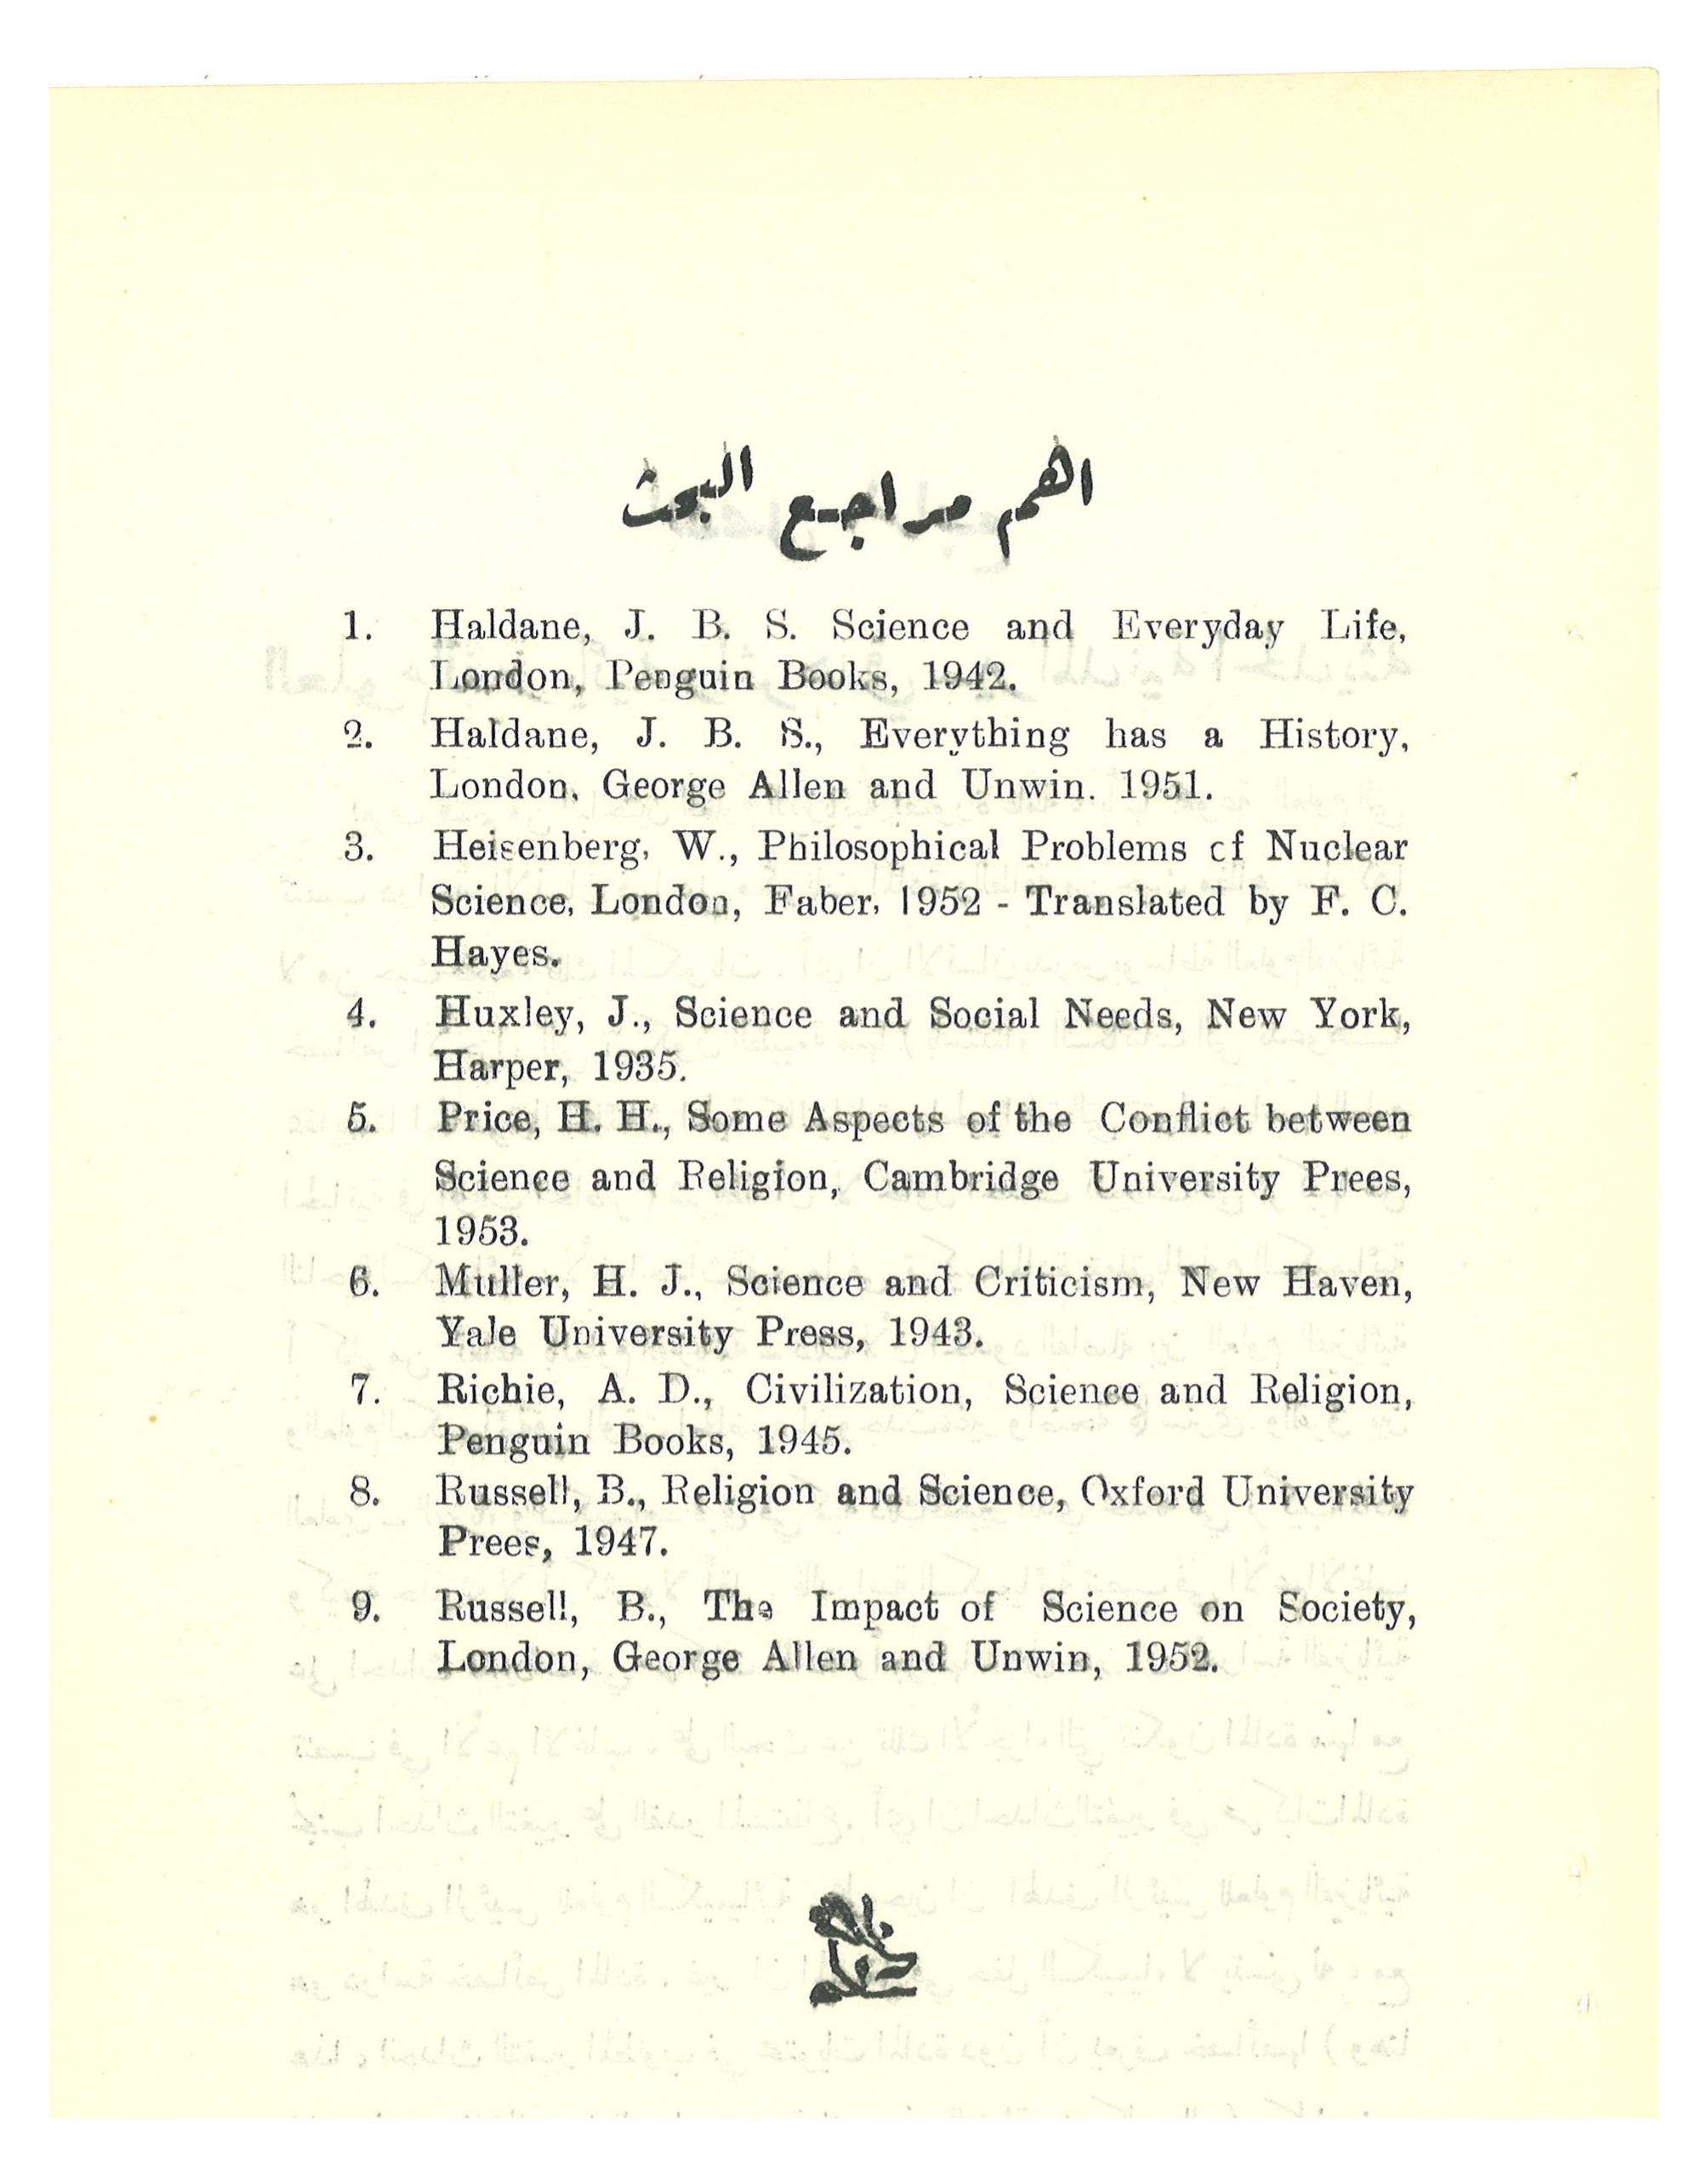 اهم مراجع البحث
1. Haldane, J. B. S. Science and Everyday Life,
London, Penguin Books, 1942.
2. Haldane, J. B. S., Everything has a History,
London, George Allen and Unwin. 1951.
3. Heisenberg, W., Philosophical Problems of Nuclear
Science, London, Faber, 1952 - Translated by F. C.
Hayes.
4. Huxley, J., Science and Social Needs, New York,
Harper, 1935.
5. Price, H. H., Some Aspects of the Conflict between
Science and Religion, Cambridge University Prees,
1953.
6. Muller, H. J., Science and Criticism, New Haven,
Yale University Press, 1943.
7. Richie, A. D., Civilization, Science and Religion,
Penguin Books, 1945.
8. Russell, B., Religion and Science, Oxford University
Prees, 1947.
9. Russell, B., The Impact of Science on Society,
London, George Allen and Unwin, 1952.